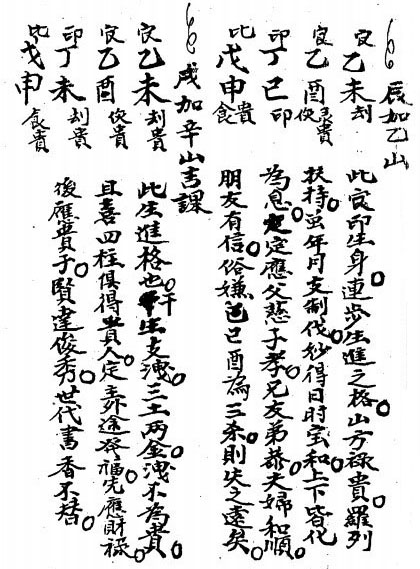 辰加乙山
官乙未刦
官乙酉貴
印丁巳印
比戊申貴食
此官印生身連步生進之格山方祿貴羅列
扶持虽年月支制伐妙得日时宝和上下皆化
為恩定應父慈子孝兄友弟恭夫婦和順
朋友有信俗嫌巳酉為三杀則失之遠矣
戌加辛山吉課
官乙未刦貴
官乙酉傷貴
印丁未刦貴
比戊申食貴
此生進格也干生支洩三土两金洩不為貴
且喜四柱俱得貴人定主异途發福先應財祿
後應貴子賢達俊秀世代書香不替